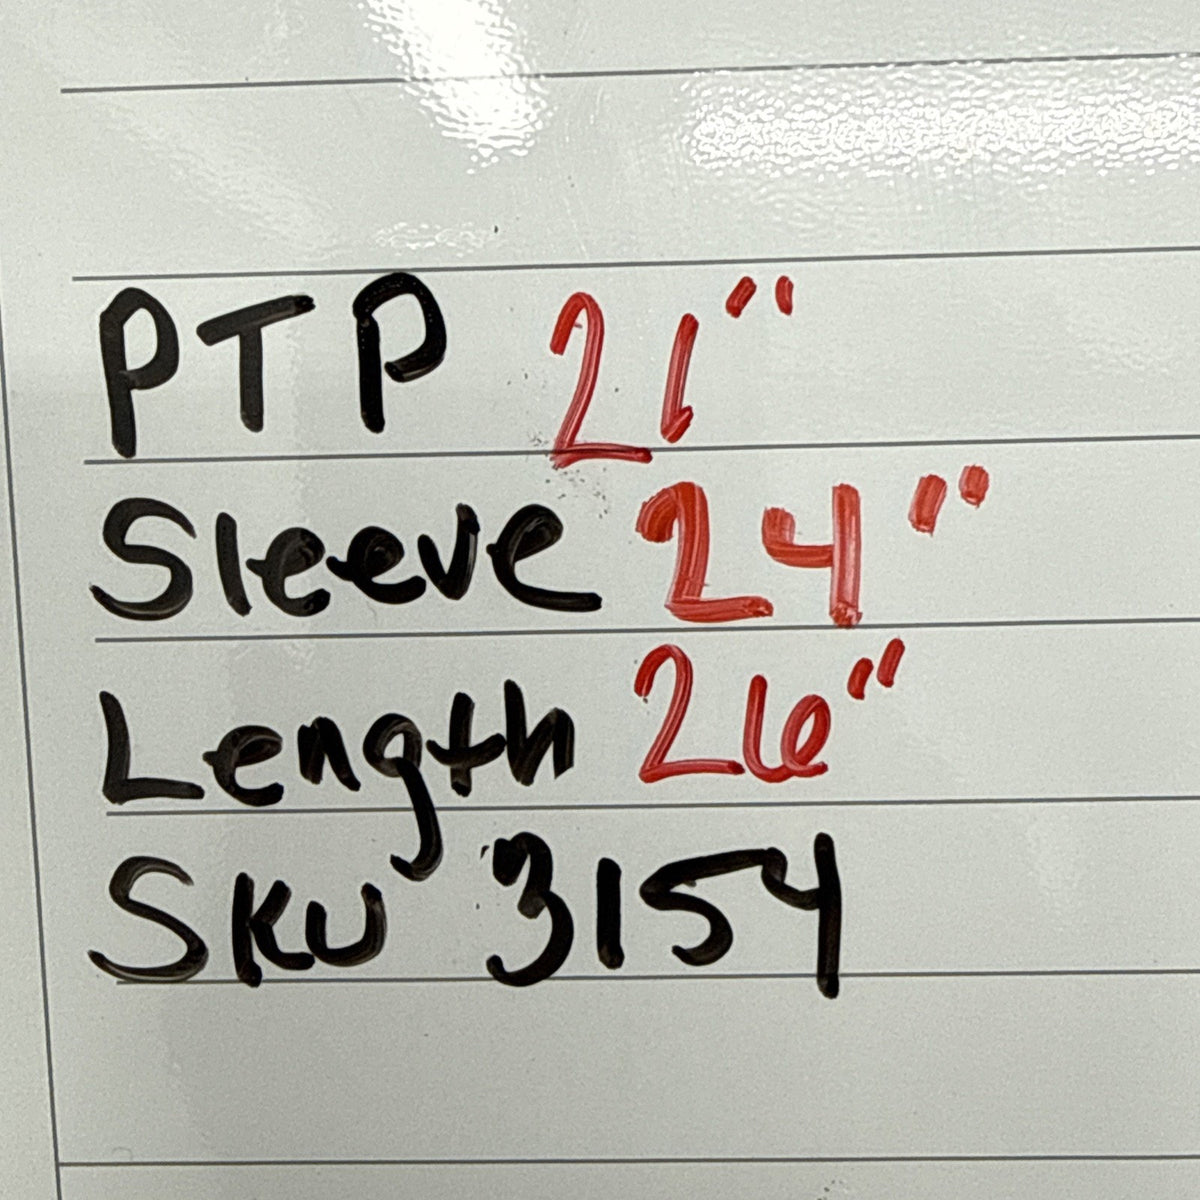 PTP 21"
Sleeve 24"
Length 26"
SKU 3154